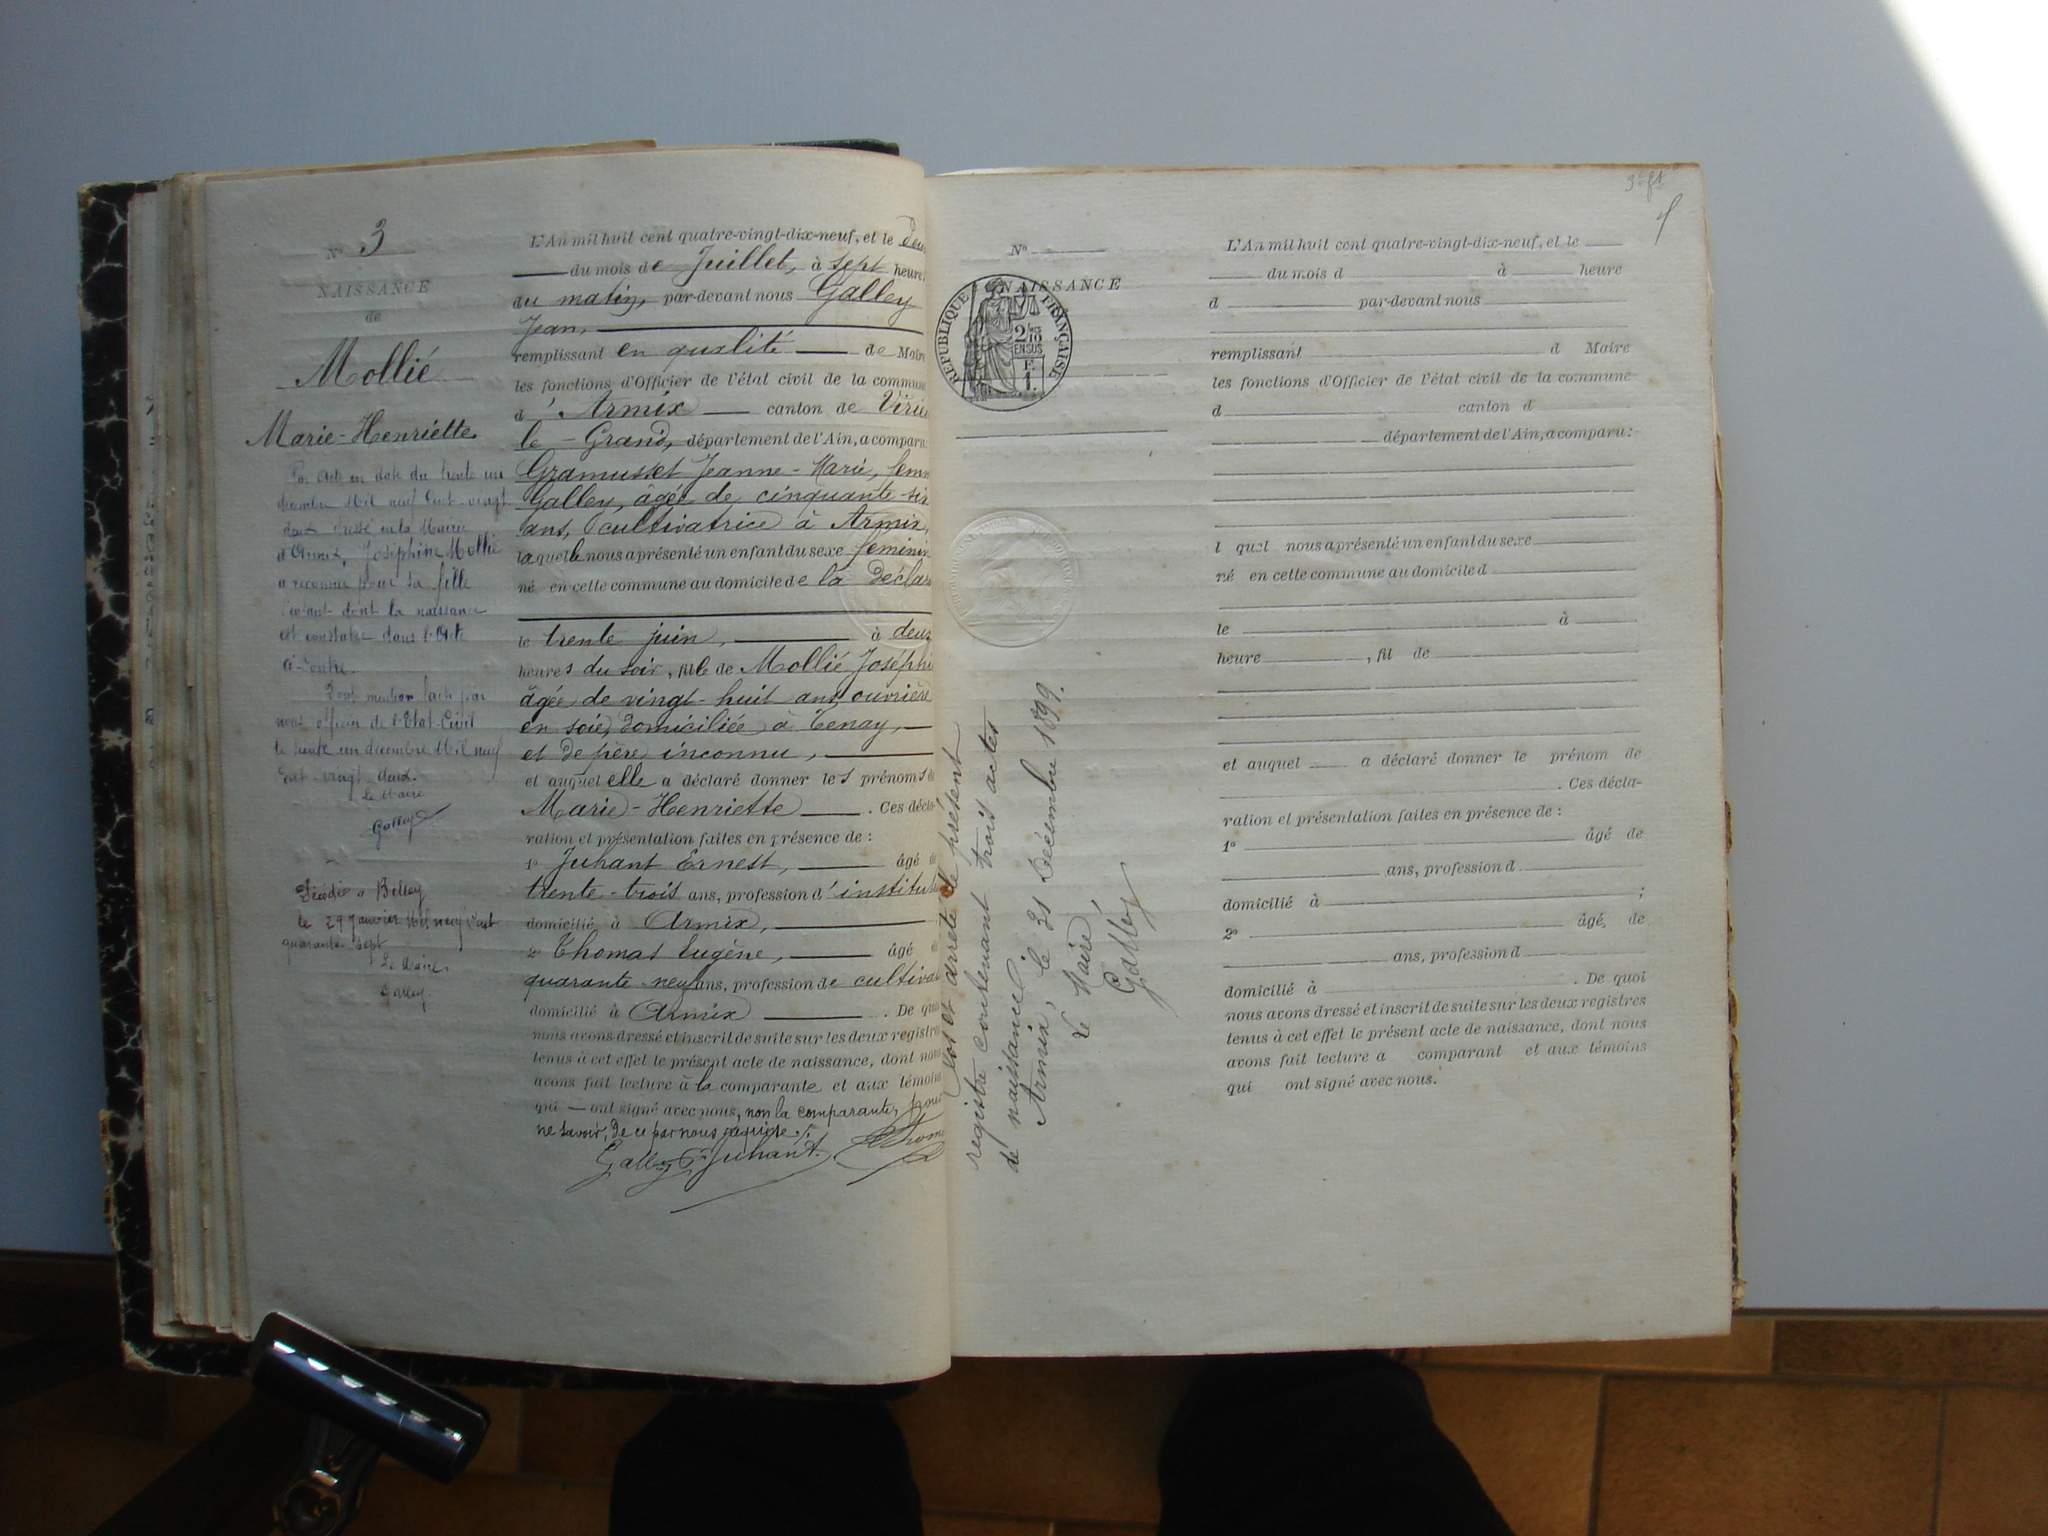 N° 3
NAISSANCE
de
Mollié
Marie-Henriette
Par Acte en date du trente un
décembre Mil neuf Cent vingt
deux dressé en la Mairie
d'Armix, Joséphine Mollié
a reconnu pour sa fille
l'enfant dont la naissance
est constatée dans l'Acte
ci-contre.
Dont mention faite par
nous officier de l'Etat-Civil
le trente un décembre Mil neuf
Cent vingt deux.
Le Maire
Galley
Décédée à Belley
le 29 Janvier Mil neuf Cent
quarante sept
Le Maire
Galley
L'An mil huit cent quatre-vingt-dix-neuf, et le Deux
du mois de Juillet, à sept heures
du matin, par-devant nous Galley
Jean,
remplissant en qualité de Maire
les fonctions d'Officier de l'état civil de la commune
d'Armix canton de Virieu
le-Grand, département de l'Ain, a comparu:
Gramusset Jeanne-Marie, femme
Galley, âgée de cinquante-six
ans, cultivatrice à Armix,
laquelle nous a présenté un enfant du sexe féminin
né en cette commune au domicile de la Déclar
le trente juin, à deux
heures du soir, fille de Mollié Joséphi
âgée de vingt-huit ans, ouvrière
en soie, domiciliée à Tenay,
et de père inconnu,
et auquel elle a déclaré donner les prénoms de
Marie-Henriette . Ces décla-
ration et présentation faites en présence de :
1° Juhant Ernest, âgé de
trente-trois ans, profession d'institut
domicilié à Armix,
2° Thomas Eugène, âgé de
quarante-neuf ans, profession de cultiva
domicilié à Armix . De quoi
nous avons dressé et inscrit de suite sur les deux registres
tenus à cet effet le présent acte de naissance, dont nous
avons fait lecture à la comparante et aux témoins
qui — ont signé avec nous, non la comparante, pour
ne savoir, de ce par nous requise ./.
Galley Juhant. Thoma
Clos et arrêté le présent
registre contenant trois actes
de naissance.
Armix, le 31 Décembre 1899.
Le Maire
Galley
3e ft
N°
NAISSANCE
REPUBLIQUE FRANÇAISE
2/10
EN SUS
F.
1.
L'An mil huit cent quatre-vingt-dix-neuf, et le
du mois d à heure
d par-devant nous
remplissant d Maire
les fonctions d'Officier de l'état civil de la commune
d canton d
département de l'Ain, a comparu :
l quel nous a présenté un enfant du sexe
né en cette commune au domicile d
le à
heure , fil de
et auquel a déclaré donner le prénom de
. Ces décla-
ration et présentation faites en présence de :
1° âgé de
ans, profession d
domicilié à ;
2° âgé, de
ans, profession d
domicilié à . De quoi
nous avons dressé et inscrit de suite sur les deux registres
tenus à cet effet le présent acte de naissance, dont nous
avons fait lecture a comparant et aux témoins
qui ont signé avec nous.